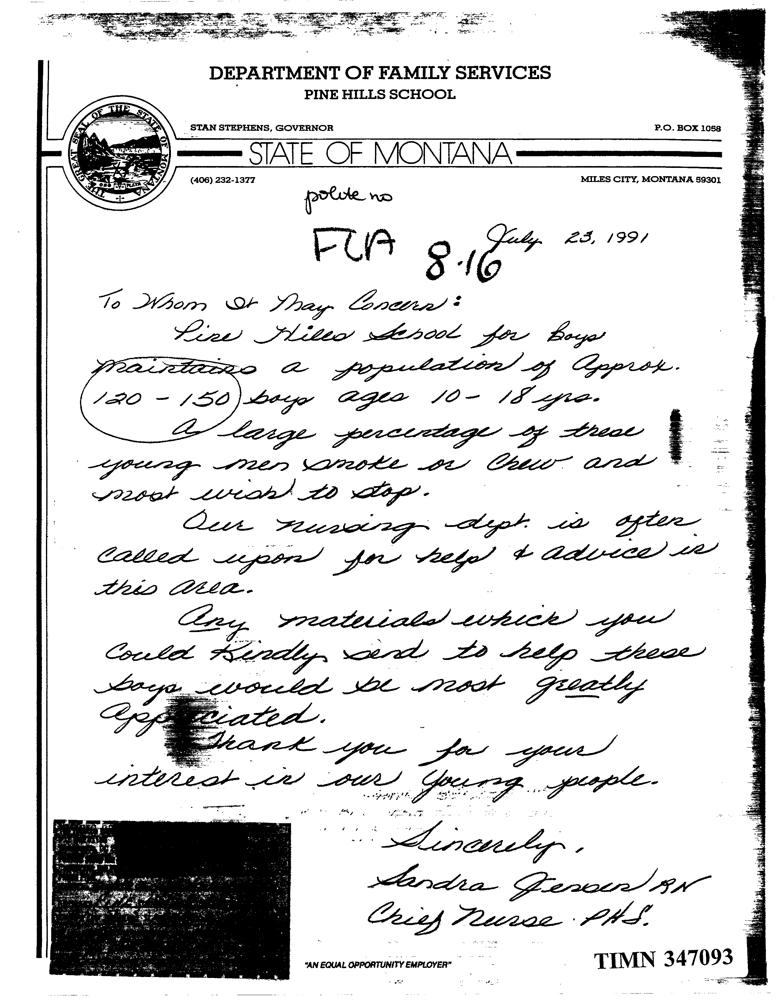 DEPARTMENT OF FAMILY SERVICES
PINE HILLS SCHOOL
THE GREAT SEAL OF THE STATE OF MONTANA
STAN STEPHENS, GOVERNOR
P.O. BOX 1058
STATE OF MONTANA
(406) 232-1377
MILES CITY, MONTANA 59301
polite no
8-16
July 23, 1991
To Whom It May Concern:
Pine Hills School for Boys
maintains a population of Approx.
120 - 150 boys ages 10 - 18 yrs.
A large percentage of these
young men smoke or Chew and
most wish to stop.
Our nursing dept. is often
called upon for help & advice in
this area.
Any materials which you
Could Kindly send to help these
boys would be most greatly
Appreciated.
Thank you for your
interest in our Young people.
Sincerely,
Sandra Jensen RN
Chief Nurse P.H.S.
"AN EQUAL OPPORTUNITY EMPLOYER"
TIMN 347093